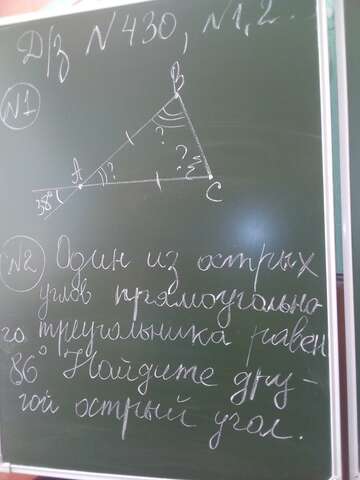 Д/з №430, №1,2.
№1
B
?
?
A
?
C
38°
№2 Один из острых
углов прямоугольно-
го треугольника равен
86° Найдите дру-
гой острый угол.